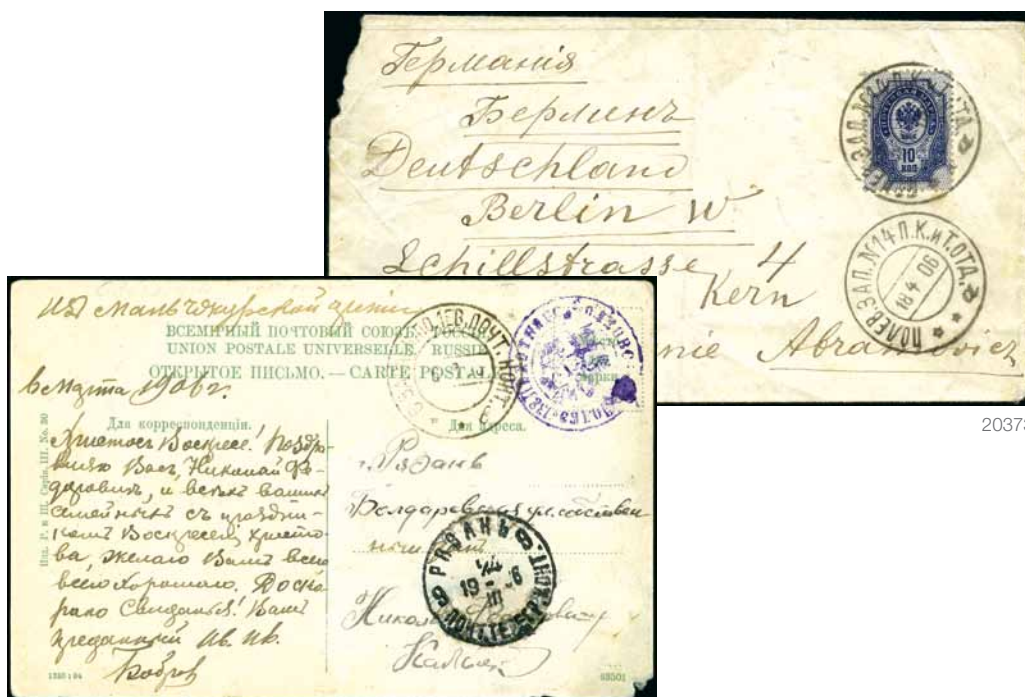 Германія
Берлинъ
Deutschland
Berlin W
Schillstrasse 4
Kern
nie Abramovicz
10
КОП
ПОЛЕВ.ЗАП.№14 П.К.иТ.ОТД.
18 4 06
20373
Изъ Маньчжурской арміи
ВСЕМІРНЫЙ ПОЧТОВЫЙ СОЮЗЪ. РОССІЯ
UNION POSTALE UNIVERSELLE. RUSSIE
ОТКРЫТОЕ ПИСЬМО. — CARTE POSTALE
6 марта 1906 г.
Для корреспонденціи.
Для адреса.
Христосъ Воскресе! Поздра-
вляю Васъ, Николай Фе-
доровичъ, и всѣхъ вашихъ
семейныхъ съ праздни-
комъ Воскресенія Христо-
ва, желаю Вамъ всего
всего хорошаго. До ско-
раго Свиданья! Вашъ
преданный Ив. Ив.
Бобровъ
г. Рязань
Николаю
РЯЗАНЬ
24
19 6
III
ПОЧТ.ТЕЛ.КОНТ.
Изд. Р. и Ш. Серія. III. No. 30
63501